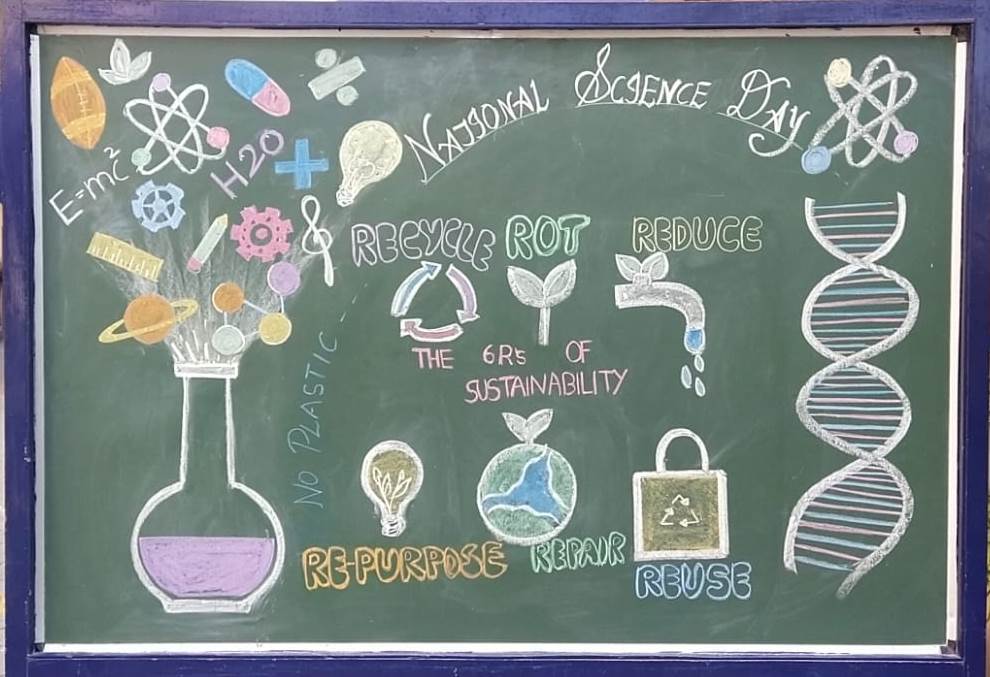 NATIONAL SCIENCE DAY
E=mc²
H2O
RECYCLE
ROT
REDUCE
THE 6R's OF
SUSTAINABILITY
NO PLASTIC
RE-PURPOSE
REPAIR
REUSE